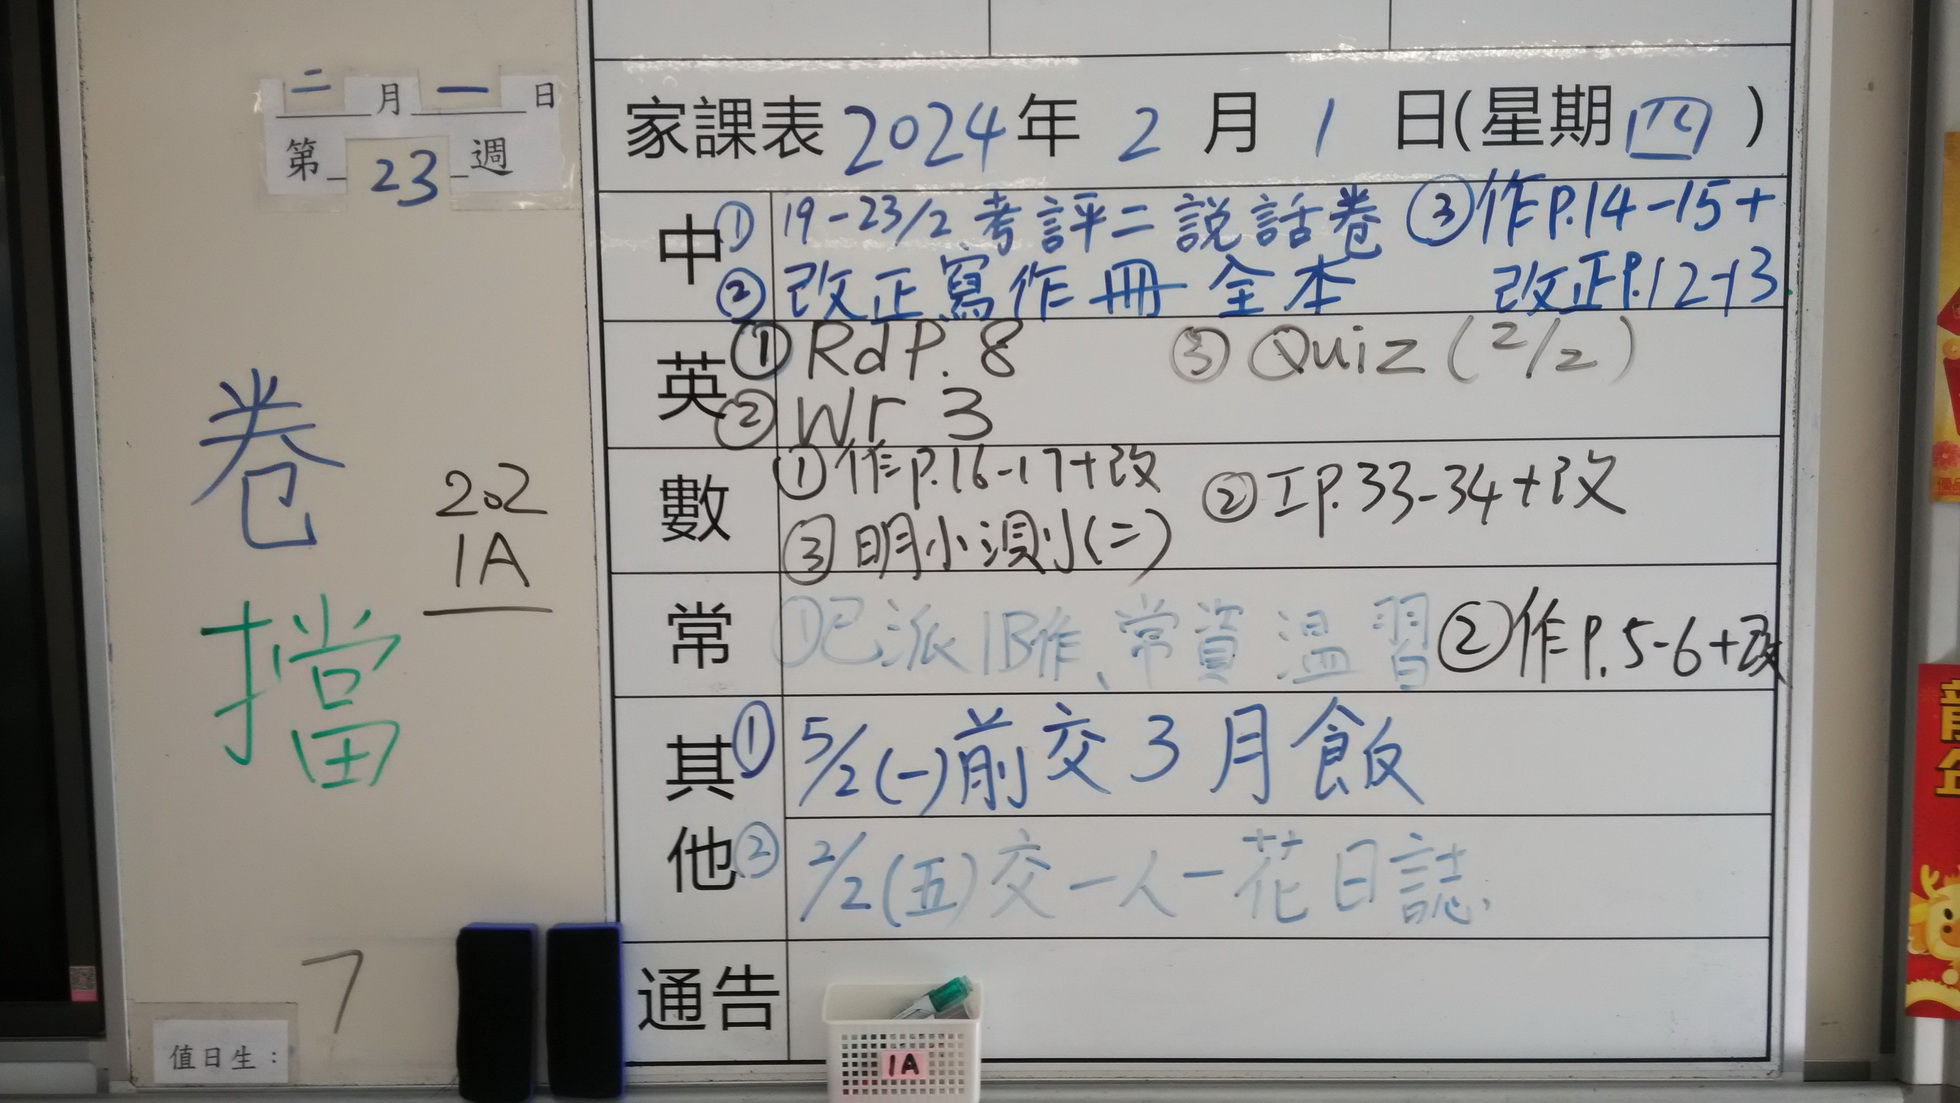 二月一日
第23週
卷
擋
202
1A
7
值日生：
家課表 2024年 2月 1日(星期四)
中 ① 19-23/2 考評二說話卷 ③作P.14-15+
② 改正寫作冊全本 改正P.12-13
英 ① Rd P. 8 ③ Quiz (2/2)
② Wr 3
數 ① 作P.16-17+改 ② 工P.33-34+改
③ 明小測(二)
常 ①已派1B作、常資溫習 ②作P.5-6+改
其他 ① 5/2(一)前交3月飯
② 2/2(五)交一人一花日誌
通告
1A
龍年